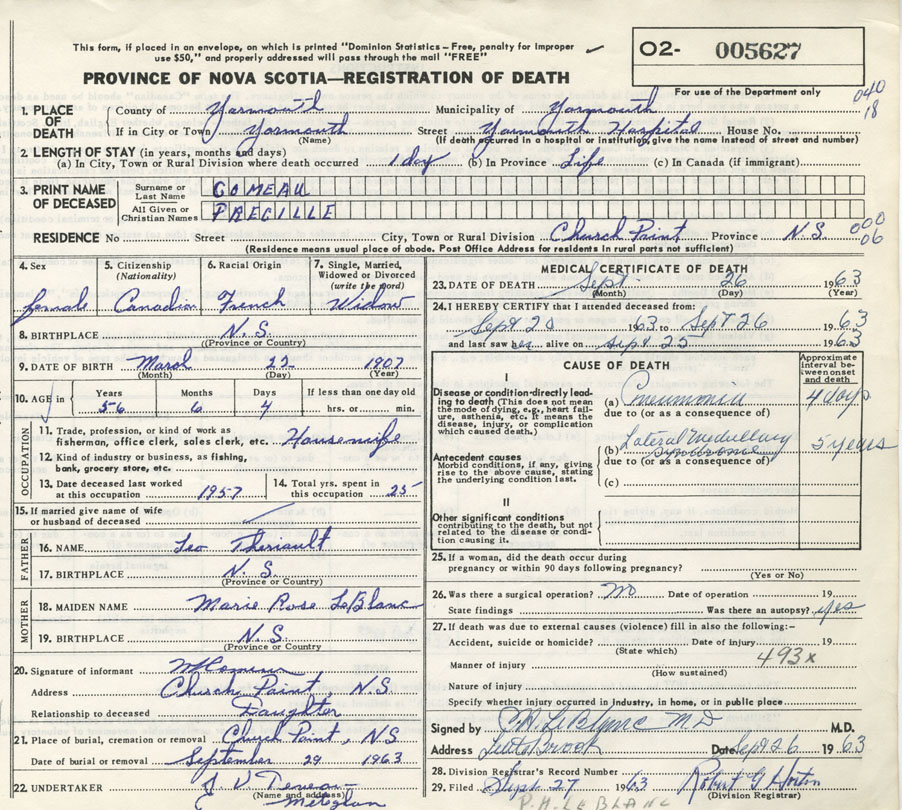 This form, if placed in an envelope, on which is printed "Dominion Statistics – Free, penalty for improper
use $50," and properly addressed will pass through the mail "FREE"
O2- 005627
PROVINCE OF NOVA SCOTIA—REGISTRATION OF DEATH
For use of the Department only
040
18
1. PLACE OF DEATH
County of Yarmouth Municipality of Yarmouth
If in City or Town Yarmouth Street Yarmouth Hospital House No.
(Name) (If death occurred in a hospital or institution, give the name instead of street and number)
2. LENGTH OF STAY (in years, months and days)
(a) In City, Town or Rural Division where death occurred 1 day (b) In Province Life (c) In Canada (if immigrant)
3. PRINT NAME OF DECEASED
Surname or Last Name COMEAU
All Given or Christian Names PRECILLE
000
06
RESIDENCE No Street City, Town or Rural Division Church Point Province N.S.
(Residence means usual place of abode. Post Office Address for residents in rural parts not sufficient)
4. Sex female
5. Citizenship (Nationality) Canadian
6. Racial Origin French
7. Single, Married, Widowed or Divorced (write the word) Widow
8. BIRTHPLACE N.S.
(Province or Country)
9. DATE OF BIRTH March 22 1907
(Month) (Day) (Year)
10. AGE in Years 56 Months 6 Days 4 If less than one day old hrs. or min.
OCCUPATION
11. Trade, profession, or kind of work as fisherman, office clerk, sales clerk, etc. Housewife
12. Kind of industry or business, as fishing, bank, grocery store, etc.
13. Date deceased last worked at this occupation 1957
14. Total yrs. spent in this occupation 25
15. If married give name of wife or husband of deceased
FATHER
16. NAME Leo Theriault
17. BIRTHPLACE N.S.
(Province or Country)
MOTHER
18. MAIDEN NAME Marie Rose LeBlanc
19. BIRTHPLACE N.S.
(Province or Country)
20. Signature of informant
Address Church Point, N.S.
Relationship to deceased Daughter
21. Place of burial, cremation or removal Church Point, NS
Date of burial or removal September 29 1963
22. UNDERTAKER
(Name and address) Meteghan
MEDICAL CERTIFICATE OF DEATH
23. DATE OF DEATH Sept. 26 1963
(Month) (Day) (Year)
24. I HEREBY CERTIFY that I attended deceased from:
Sept 20 1963 to Sept 26 1963
and last saw her alive on Sept 25 1963
CAUSE OF DEATH
Approximate interval between onset and death
I
Disease or condition directly leading to death (This does not mean the mode of dying, e.g., heart failure, asthenia, etc. It means the disease, injury, or complication which caused death.)
(a) Pneumonia 4 days
due to (or as a consequence of)
Antecedent causes
Morbid conditions, if any, giving rise to the above cause, stating the underlying condition last.
(b) Lateral Medullary syndrome 5 years
due to (or as a consequence of)
(c)
II
Other significant conditions
contributing to the death, but not related to the disease or condition causing it.
25. If a woman, did the death occur during pregnancy or within 90 days following pregnancy?
(Yes or No)
26. Was there a surgical operation? No Date of operation 19
State findings Was there an autopsy? yes
27. If death was due to external causes (violence) fill in also the following:–
Accident, suicide or homicide? Date of injury 19
(State which) 493x
Manner of injury
(How sustained)
Nature of injury
Specify whether injury occurred in industry, in home, or in public place
Signed by P.H. LeBlanc MD M.D.
Address Date Sept 26 1963
28. Division Registrar's Record Number
29. Filed Sept. 27 1963 Robert G Horton
(Division Registrar)
P.H. LEBLANC